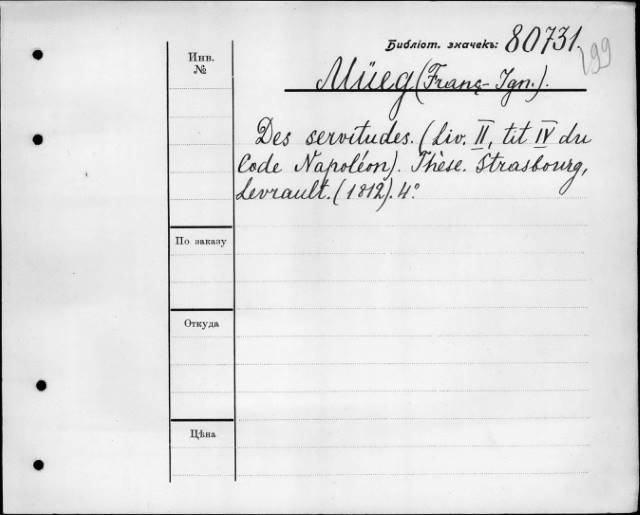 Библіот. значекъ: 80731.
199
Инв. №
Müeg (Franç-Ign.).
Des servitudes. (Liv. II, tit IV du
Code Napoléon). Thèse. Strasbourg,
Levrault. (1812). 4º.
По заказу
Откуда
Цѣна